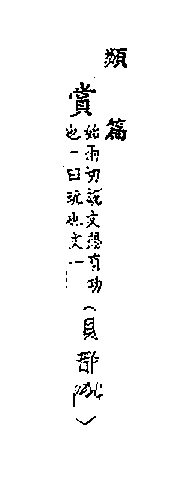 類篇
賞
始兩切說文賜有功
也一曰玩也文一
（貝部）